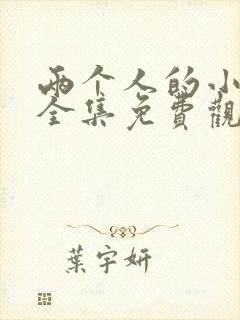 两个人的小
全集免費觀
葉宇妍